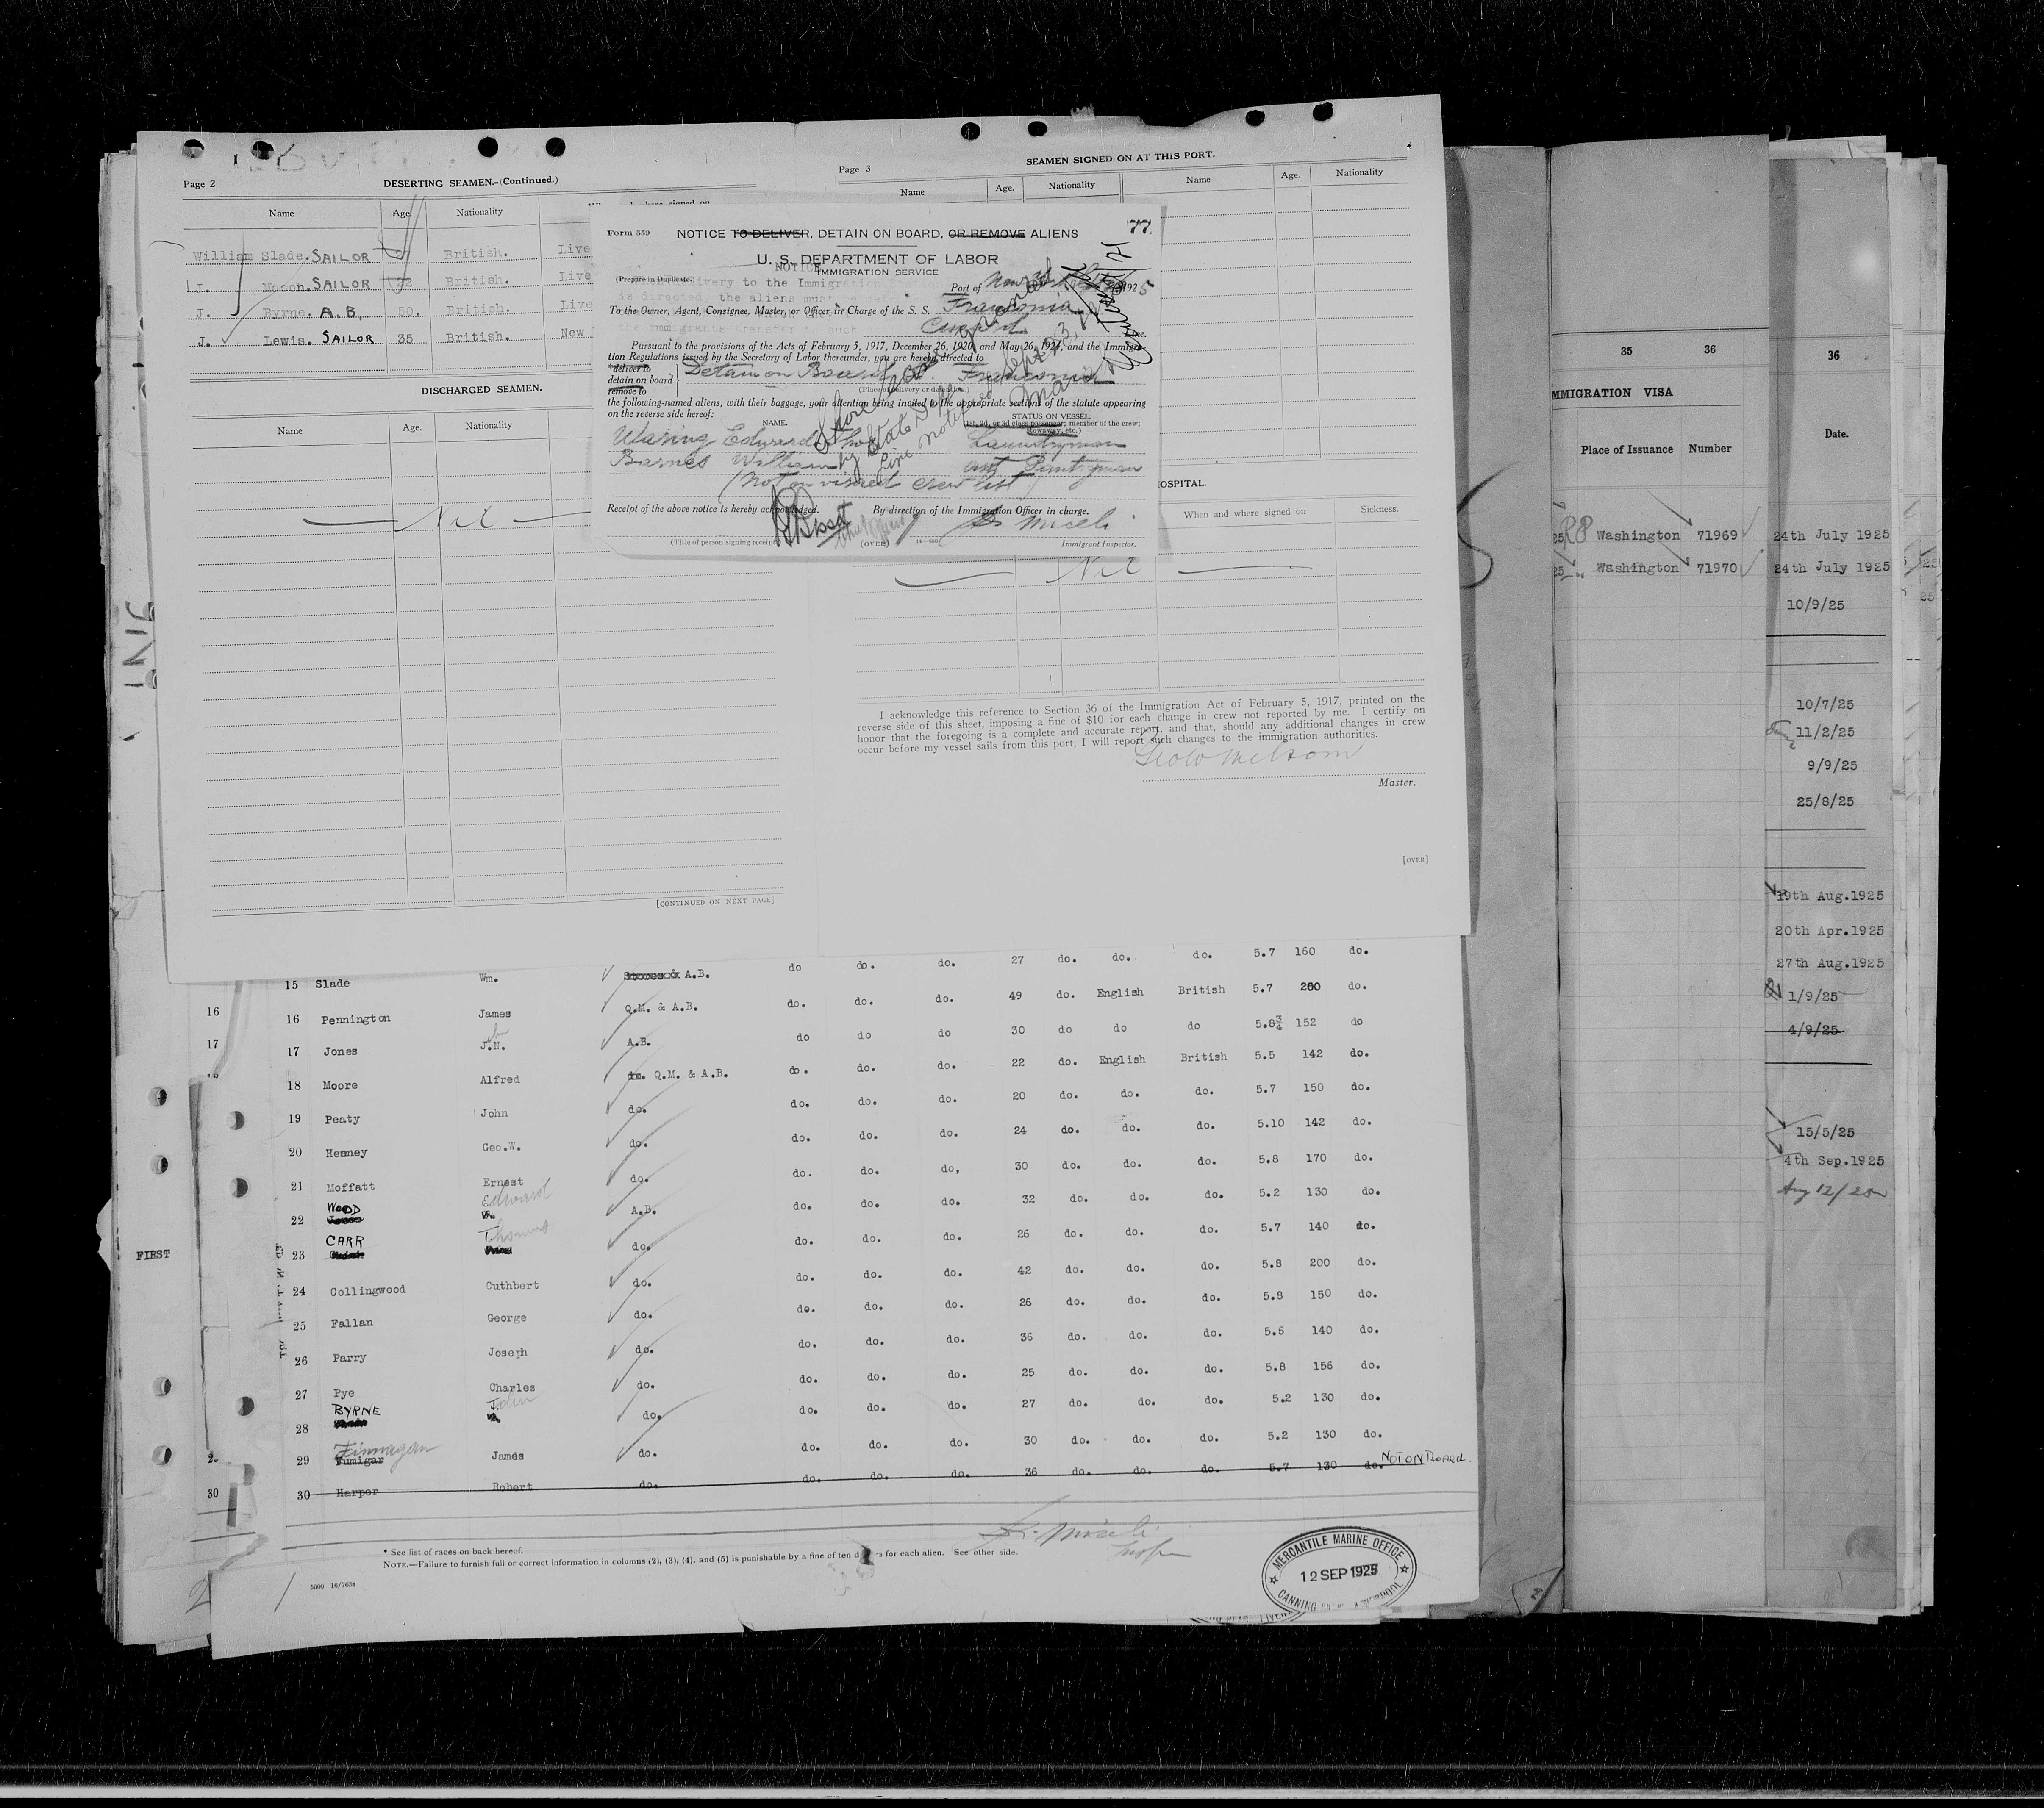 Page 2
DESERTING SEAMEN.-(Continued.)
Name Age. Nationality
William Slade. SAILOR British. Live
J. Mason. SAILOR 22 British. Live
J. Byrne. A.B. 30. British. Live
J. Lewis. SAILOR 35 British. New
DISCHARGED SEAMEN.
Name Age. Nationality
Nil
[CONTINUED ON NEXT PAGE]
Page 3
SEAMEN SIGNED ON AT THIS PORT.
Name Age. Nationality Name Age. Nationality
Form 559 NOTICE TO DELIVER, DETAIN ON BOARD, OR REMOVE ALIENS 77
U. S. DEPARTMENT OF LABOR
IMMIGRATION SERVICE
(Prepare in Duplicate)
Port of New York 1925
To the Owner, Agent, Consignee, Master, or Officer in Charge of the S. S. Franconia
Cunard Line.
Pursuant to the provisions of the Acts of February 5, 1917, December 26, 1920, and May 26, 1924, and the Immigra-
tion Regulations issued by the Secretary of Labor thereunder, you are hereby directed to
deliver to
detain on board
remove to
Detain on Board Franconia
(Place of delivery or detention.)
the following-named aliens, with their baggage, your attention being invited to the appropriate sections of the statute appearing
on the reverse side hereof:
NAME. STATUS ON VESSEL.
(1st, 2d, or 3d class passenger; member of the crew;
stowaway, etc.)
Waring Edward Laundryman
Barnes William Pantryman
(Not on visaed crew list)
Receipt of the above notice is hereby acknowledged. By direction of the Immigration Officer in charge.
S. Miceli
(Title of person signing receipt) (OVER) Immigrant Inspector.
HOSPITAL.
When and where signed on Sickness.
Nil
I acknowledge this reference to Section 36 of the Immigration Act of February 5, 1917, printed on the
reverse side of this sheet, imposing a fine of $10 for each change in crew not reported by me. I certify on
honor that the foregoing is a complete and accurate report, and that, should any additional changes in crew
occur before my vessel sails from this port, I will report such changes to the immigration authorities.
Master.
[OVER]
15 Slade Wm. A.B. do do. do. 27 do. do. do. 5.7 160 do.
16 16 Pennington James Q.M. & A.B. do. do. do. 49 do. English British 5.7 200 do.
17 17 Jones J.N. A.B. do do do 30 do do do 5.8¾ 152 do
18 Moore Alfred do. Q.M. & A.B. do. do. do. 22 do. English British 5.5 142 do.
19 Peaty John do. do. do. do. 20 do. do. do. 5.7 150 do.
20 Heaney Geo.W. do. do. do. do. 24 do. do. do. 5.10 142 do.
21 Moffatt Ernest do. do. do. do, 30 do. do. do. 5.8 170 do.
22 WOOD Edward A.B. do. do. do. 32 do. do. do. 5.2 130 do.
23 CARR Thomas do. do. do. do. 26 do. do. do. 5.7 140 do.
24 Collingwood Cuthbert do. do. do. do. 42 do. do. do. 5.8 200 do.
25 Fallan George do. do. do. do. 26 do. do. do. 5.8 150 do.
26 Parry Joseph do. do. do. do. 36 do. do. do. 5.6 140 do.
27 Pye Charles do. do. do. do. 25 do. do. do. 5.8 156 do.
28 BYRNE John do. do. do. do. 27 do. do. do. 5.2 130 do.
29 Finnagan Fumigar James do. do. do. do. 30 do. do. do. 5.2 130 do.
30 30 Harper Robert do. do. do. do. 36 do. do. do. 5.7 130 do. NOT ON BOARD.
FIRST
* See list of races on back hereof.
NOTE.—Failure to furnish full or correct information in columns (2), (3), (4), and (5) is punishable by a fine of ten dollars for each alien. See other side.
5000 16/7638
S. Miceli
MERCANTILE MARINE OFFICE
12 SEP 1925
CANNING
35 36
MMIGRATION VISA
Place of Issuance Number
Washington 71969
Washington 71970
36
Date.
24th July 1925
24th July 1925
10/9/25
10/7/25
11/2/25
9/9/25
25/8/25
19th Aug.1925
20th Apr.1925
27th Aug.1925
1/9/25
4/9/25
15/5/25
4th Sep.1925
Aug 12/25